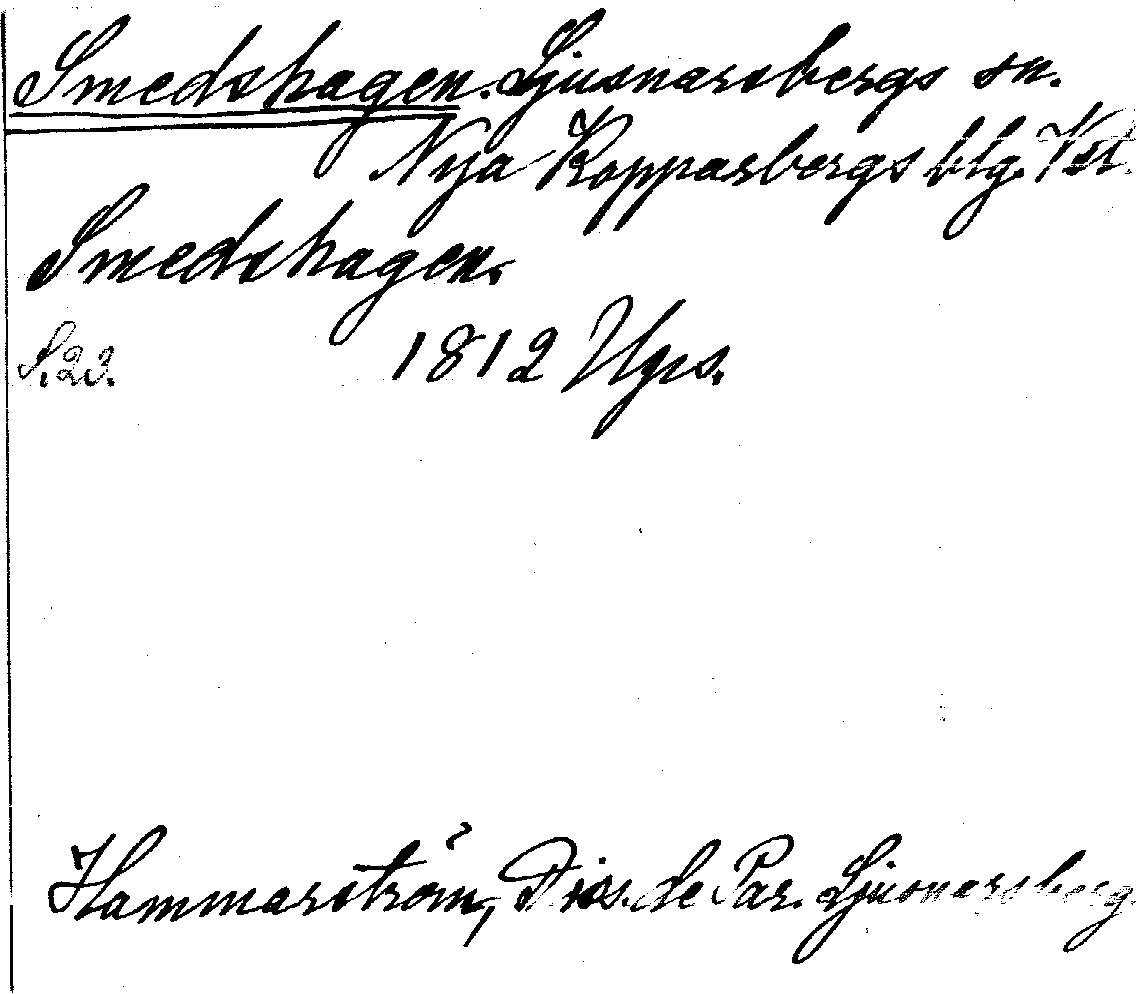 Smedshagen. Ljusnarsbergs sn.
Nya Kopparbergs blg. Vstl.
Smedshagen.
S. 23. 1812 Ups.
Hammarström, Diss. de Par. Ljusnarsberg.